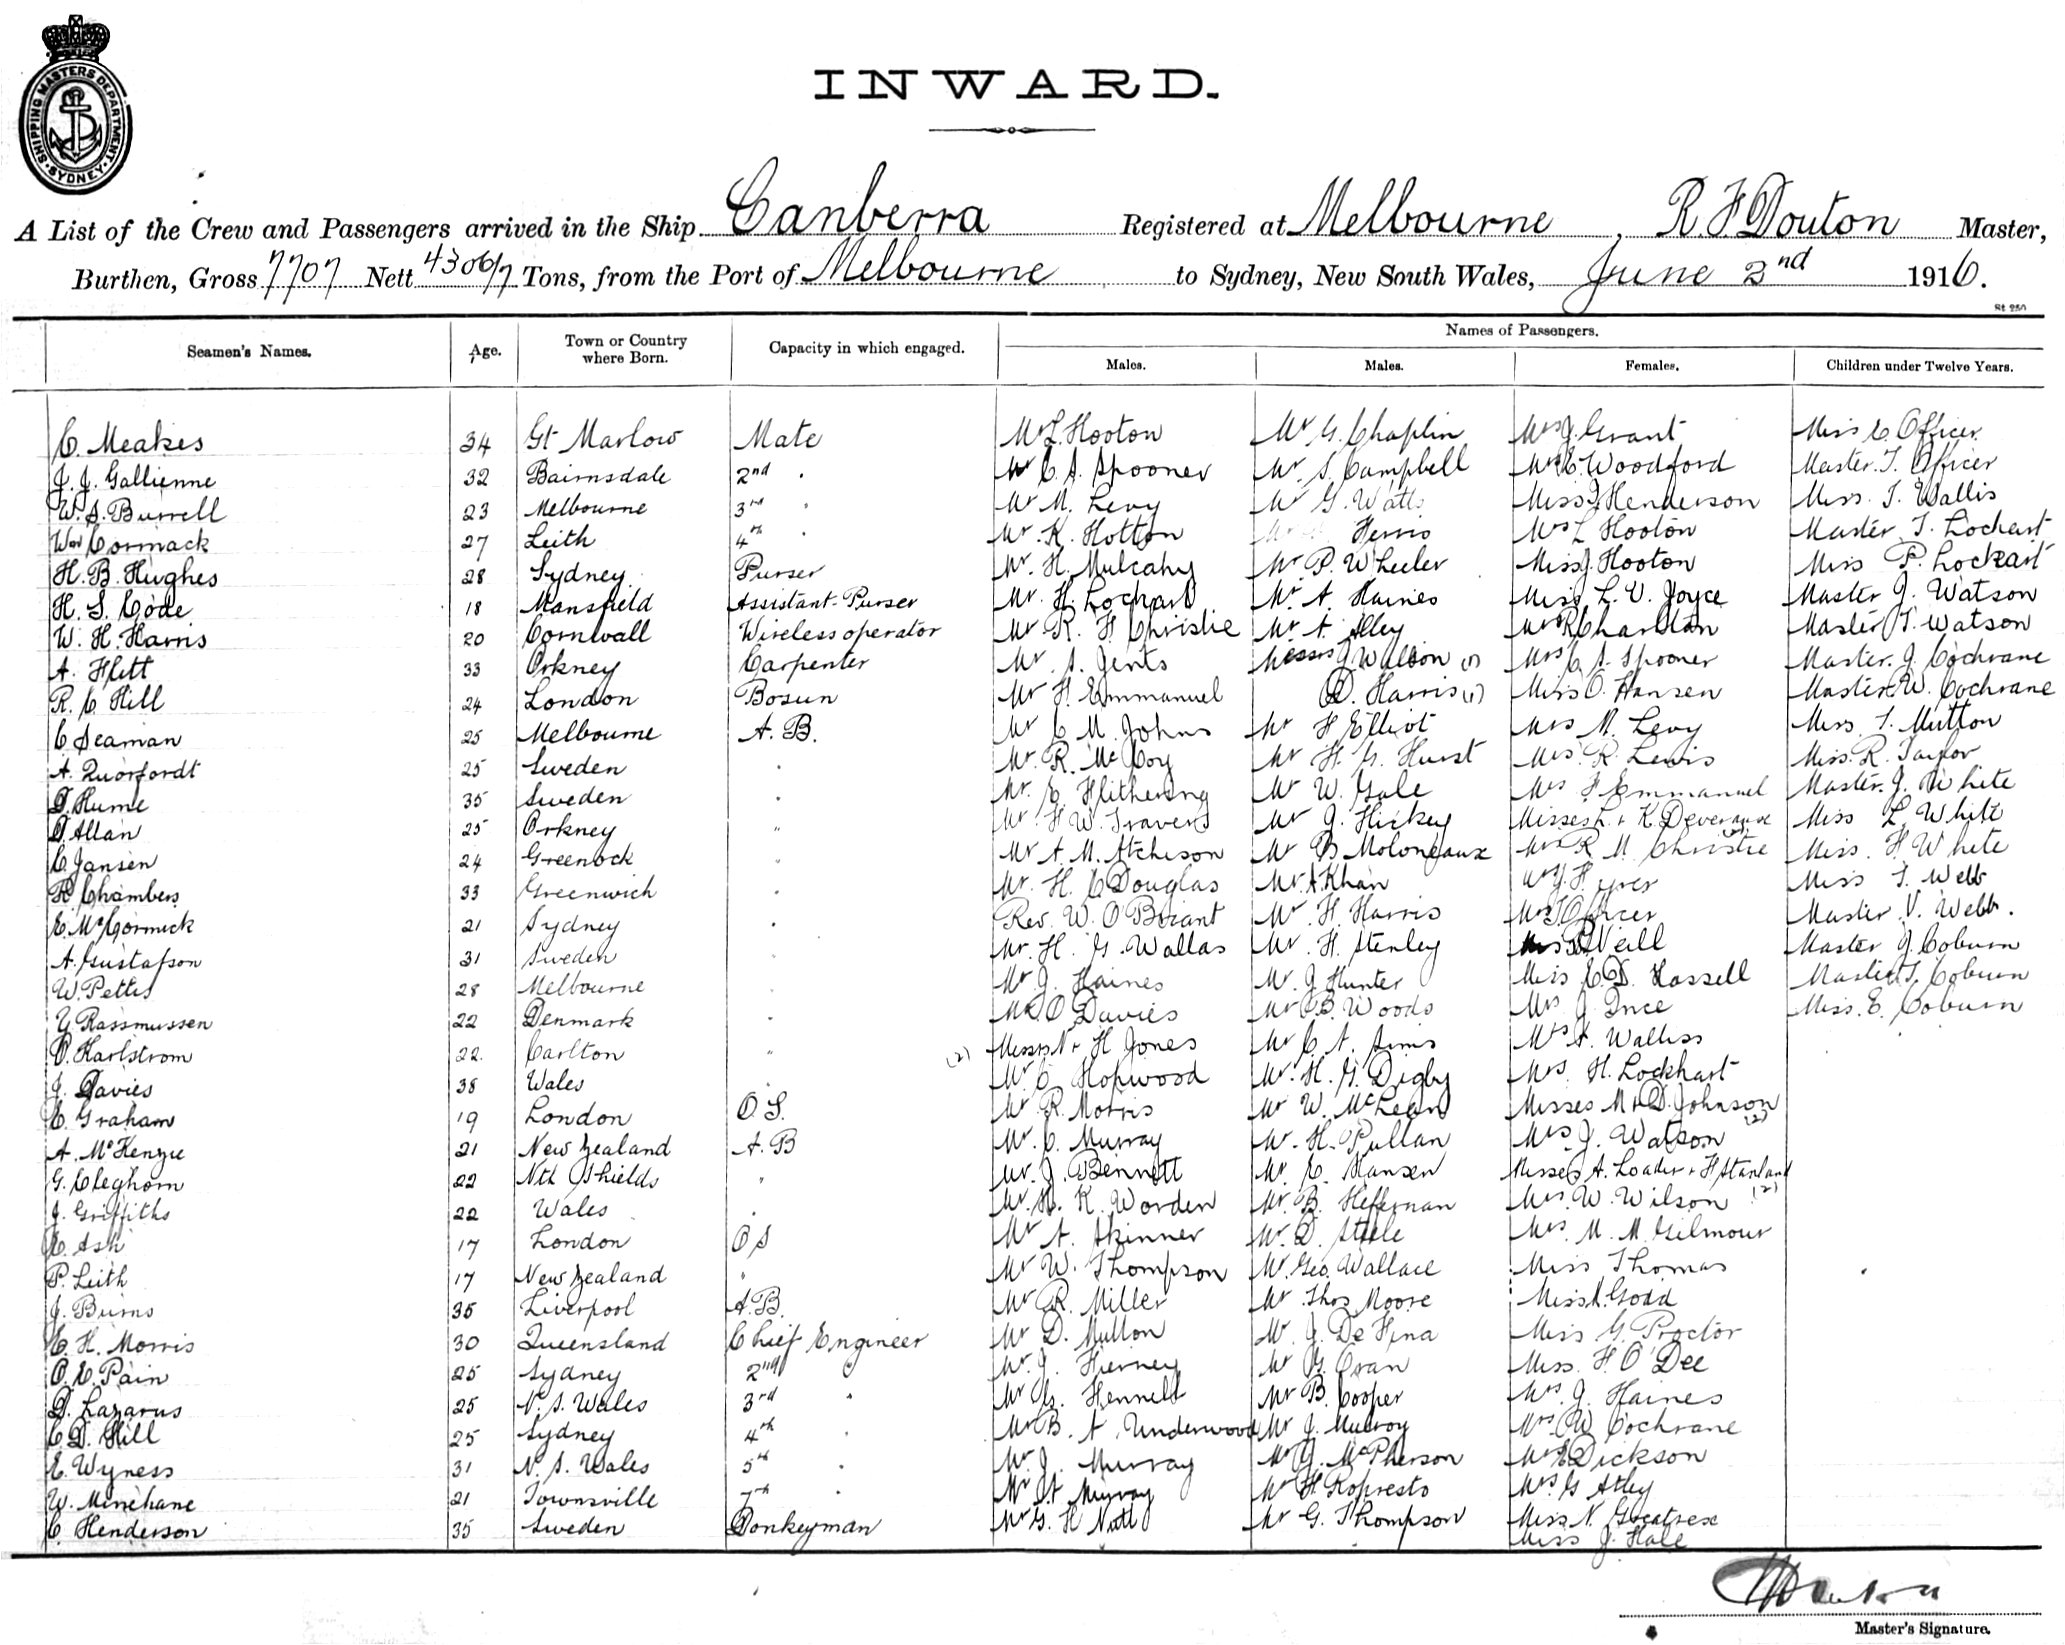 SHIPPING MASTERS DEPARTMENT · SYDNEY ·
INWARD.
A List of the Crew and Passengers arrived in the Ship Canberra Registered at Melbourne, R. F Douton Master,
Burthen, Gross 7707 Nett 4306/7 Tons, from the Port of Melbourne to Sydney, New South Wales, June 2nd 1916.
St 250
Seamen's Names. Age. Town or Country where Born. Capacity in which engaged. Names of Passengers.
Males. Males. Females. Children under Twelve Years.
C. Meakes 34 Gt Marlow Mate Mr L. Hooton Mr G. Chaplin Mrs J. Grant Miss C. Officer
J. J. Gallienne 32 Bairnsdale 2nd " Mr C. A. Spooner Mr S. Campbell Mrs E. Woodford Master. T. Officer
W. S. Burrell 23 Melbourne 3rd " Mr M. Levy Mr G. Watts Miss J Henderson Miss. T. Wallis
Wm Cormack 27 Leith 4th " Mr. K. Hotton Ferris Mrs L Hooton Master T. Lockart
H. B. Hughes 28 Sydney Purser Mr. H. Mulcahy Mr P. Wheeler Miss J. Hooton Miss P. Lockart
H. S. Code 18 Mansfield Assistant Purser Mr. H. Lochart Mr. A. Haines Miss L. V. Joyce Master J. Watson
W. H. Harris 20 Cornwall Wireless operator Mr R. H. Christie Mr. A. Alley Mrs R Charlston Master T. Watson
A. Flett 33 Orkney Carpenter Mr. S. Jents Messrs J Walton (1) Mrs C. A. Spooner Master. J. Cochrane
R. C. Hill 24 London Bosun Mr F. Emmanuel D. Harris (1) Miss O. Hansen Master W. Cochrane
C Seaman 25 Melbourne A. B. Mr C. M. Johns Mr F Elliot Mrs M. Levy Miss. T. Mutton
A. Quorfordt 25 Sweden " Mr. R. McCoy Mr H. G. Hurst Mrs. R. Lewis Miss. R. Taylor
D. Hume 35 Sweden " Mr. C. Flithering Mr W. Gale Mrs F Emmanuel Master. J. White
D. Allan 25 Orkney " Mr. F W. Travers Mr J. Hickey Misses L. & K. Deveraux Miss L. White
C. Jansen 24 Greenock " Mr A. M. Atcheson Mr B Moloneaux Mrs R. M. Christie Miss. H White
R. Chambers 33 Greenwich " Mr. H. C Douglas Mr. A. Khan Miss T. Webb
E. McCormick 21 Sydney " Rev. W. O Briant Mr. H. Harris Mrs T Officer Master. V. Webb.
A. Gustafson 31 Sweden " Mr. H. G. Wallas Mr. H. Stenley Neill Master J. Coburn
W. Pettis 28 Melbourne " Mr J. Haines Mr. J Hunter Miss C. D. Kassell Master T. Coburn
Y. Rassmussen 22 Denmark " Mr. O Davies Mr. B. Woods Mrs J. Ince Miss. E. Coburn
O. Karlstrom 22. Carlton " (2) Messrs N & H Jones Mr C. A. Sims Mrs A. Walliss
J. Davies 38 Wales " Mr C Hopwood Mr. H. G. Digby Mrs. H. Lockhart
C. Graham 19 London O. S. Mr R. Morris Mr W. McLean Misses M & D. Johnson (2)
A. McKenzie 21 New Zealand A. B Mr. C. Murray Mr. H. Pullan Mrs J. Watson
G. Cleghorn 22 Nth Shields " Mr. J. Bennett Mr. C. Hansen Misses A. Loader & H Stanland (2)
J. Griffiths 22 Wales " Mr. H. K. Worden Mr. B. Heffernan Mrs. W. Wilson
E. Ash 17 London O S Mr A. Skinner Mr. D. Steele Mrs. M. M. Gilmour
P. Leith 17 New Zealand " Mr W. Thompson Mr. Geo. Wallace Miss Thomas
J. Burns 35 Liverpool A. B. Mr R. Miller Mr. Thos Moore Miss A. Goad
C. H. Morris 30 Queensland Chief Engineer Mr D. Mutton Mr. J. De Fina Miss G. Proctor
O. C. Pain 25 Sydney 2nd " Mr. J. Tierney Mr G. Oran Miss. H O'Dee
D. Lazarus 25 N. S. Wales 3rd " Mr G. Hennell Mr B. Cooper Mrs. J. Haines
C. D. Hill 25 Sydney 4th " Mr B. A. Underwood Mr J. Mulroy Mrs. W Cochrane
E. Wyness 31 N. S. Wales 5th " Mr. J. Murray Mr J. McPherson Mrs E Dickson
W. Minehane 21 Townsville 7th " Mr A Murray Mr H Ropresto Mrs G Atley
C. Henderson 35 Sweden Donkeyman Mr G. H Nutt Mr G. Thompson Miss N. Greatrex
Miss J. Hale
Master's Signature.